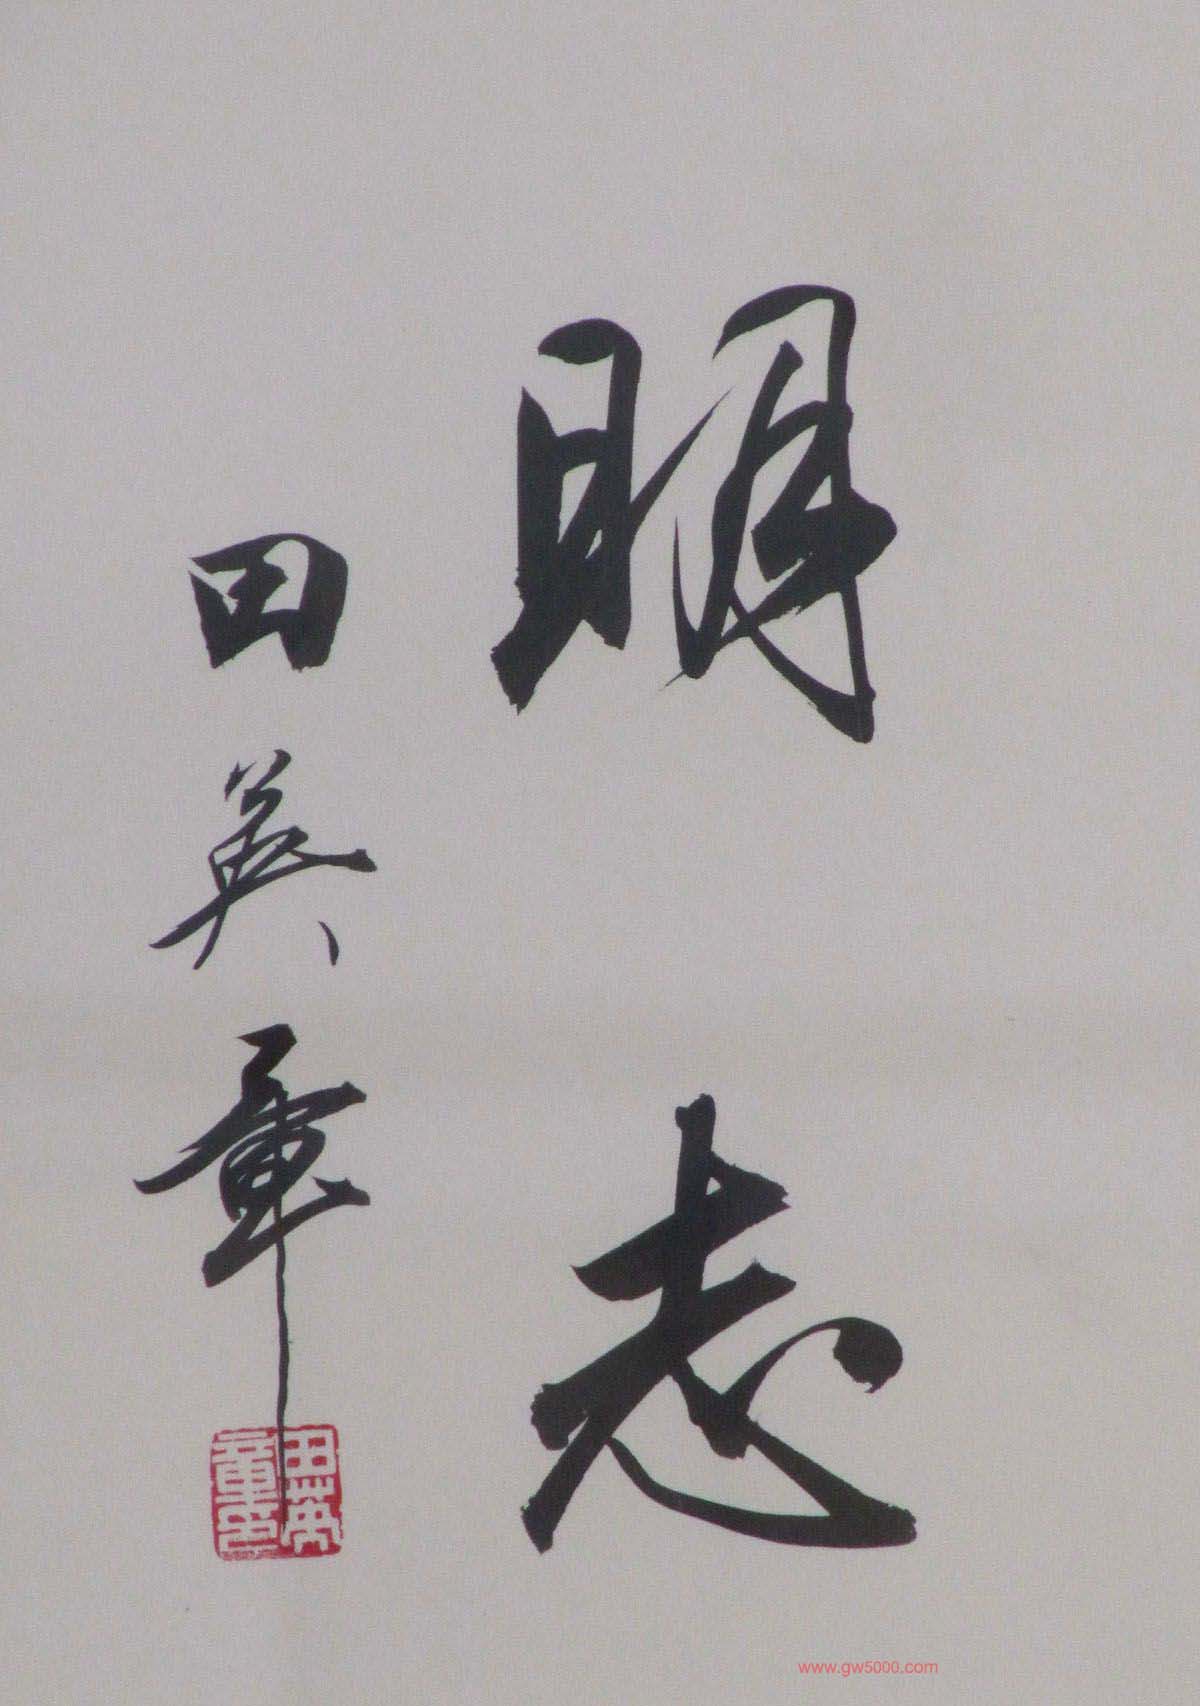 明志
田英章
田英章印
www.gw5000.com